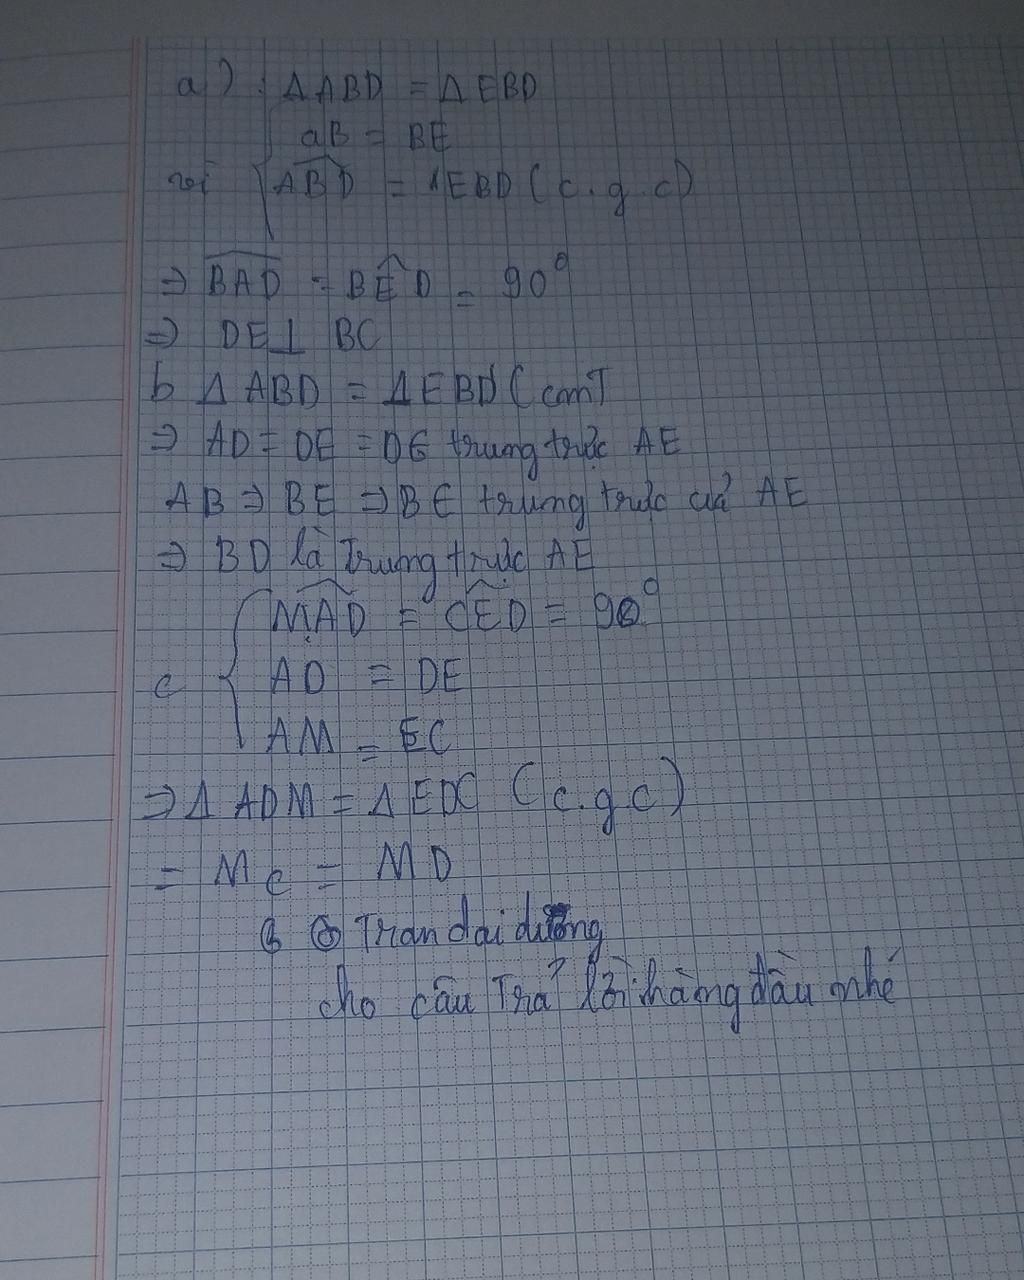 a) ΔABD = ΔEBD
aB = BE
với ABD = ΔEBD (c.g.c)
⇒ BAD = BÊD = 90°
⇒ DE⊥ BC
b ΔABD = ΔEBD (cmT
⇒ AD = DE = D∈ trung trực AE
AB ⇒ BE ⇒ B∈ trung trực củả AE
⇒ BD là Trung trực AE
MAD = CED = 90°
c AD = DE
AM = EC
⇒ Δ ADM = Δ EDC (c.g c)
= Mc = MD
Tran dai dương
cho câu Trả lời hàng đầu nhé